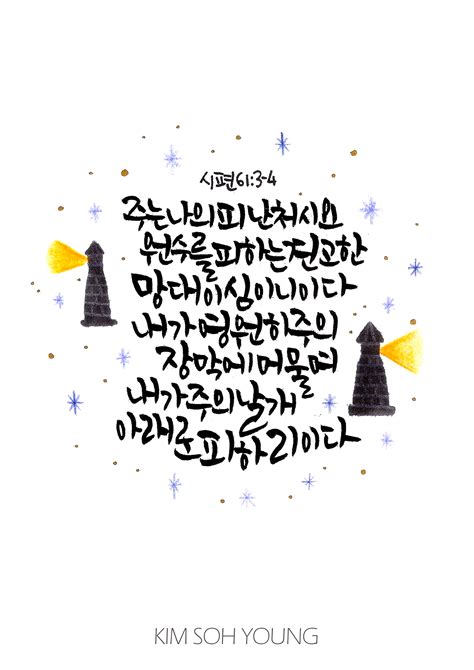 시편 61:3-4
주는 나의 피난처시요
원수를 피하는 견고한
망대이심이니이다
내가 영원히 주의
장막에 머물며
내가 주의 날개
아래로 피하리이다
KIM SOH YOUNG